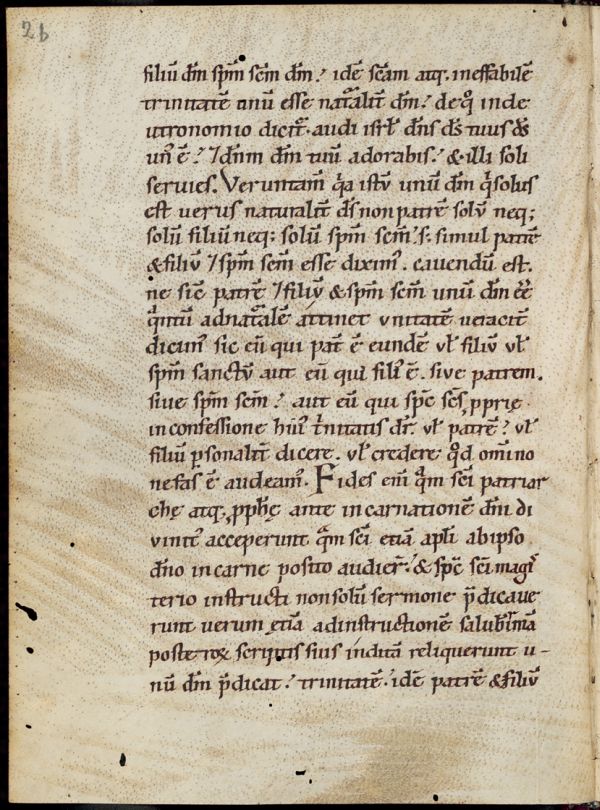 2b
filiū dm̄ sp̄m sc̄m dm̄! idē sc̄am atq; ineffabilē
trinitatē unū esse nat̄alit̄ dm̄! de q̊ in de
utronomio dicit̄. audi isrł dn̄s ds̄ tuus ds̄
un᷒ ē! ⁊ dn̄m dm̄ tuū adorabis! & illi soli
servies. Veruntam̄ q̄a istū unū dm̄ q̇ solus
est verus naturalit̄ ds̄ non patrē solū neq;
solū filiū neq; solū sp̄m sc̄m! s; simul patrē
& filiū ⁊ sp̄m sc̄m esse dixim᷒. cavendū est.
ne sic̄ patrē ⁊ filiū & sp̄m sc̄m unū dm̄ ēē
q̄ntū ad nat̄alē attinet unitatē veracit̄
dicim᷒ sic eū qui pat̄ ē eundē uł filiū uł
sp̄m sanctū aut eū qui fili᷒ ē. sive patrem.
sive sp̄m sc̄m! aut eū qui sp̄c sc̄s ꝓprię
in confessione hui᷒ t̄nitatis dr̄ uł patrē? uł
filiū ꝑsonalit̄ dicere. uł credere q̊d om̄ino
nefas ē audeam᷒. Fides em̄ q̄m sc̄i patriar
chę atq; ꝓph̄ę ante incarnationē dm̄ di
vinit᷒ acceperunt q̄m sc̄i etiā apłi ab ipso
dn̄o in carne posito audier̄! & sp̄c sc̄i magi
terio instructi non solū sermone p̄dicave
runt verum ętiā ad instructionē salub̄rimā
posteroꝝ scriptis suis inditā reliquerunt u-
nū dm̄ p̄dicat! trinitatē! idē patrē & filiū